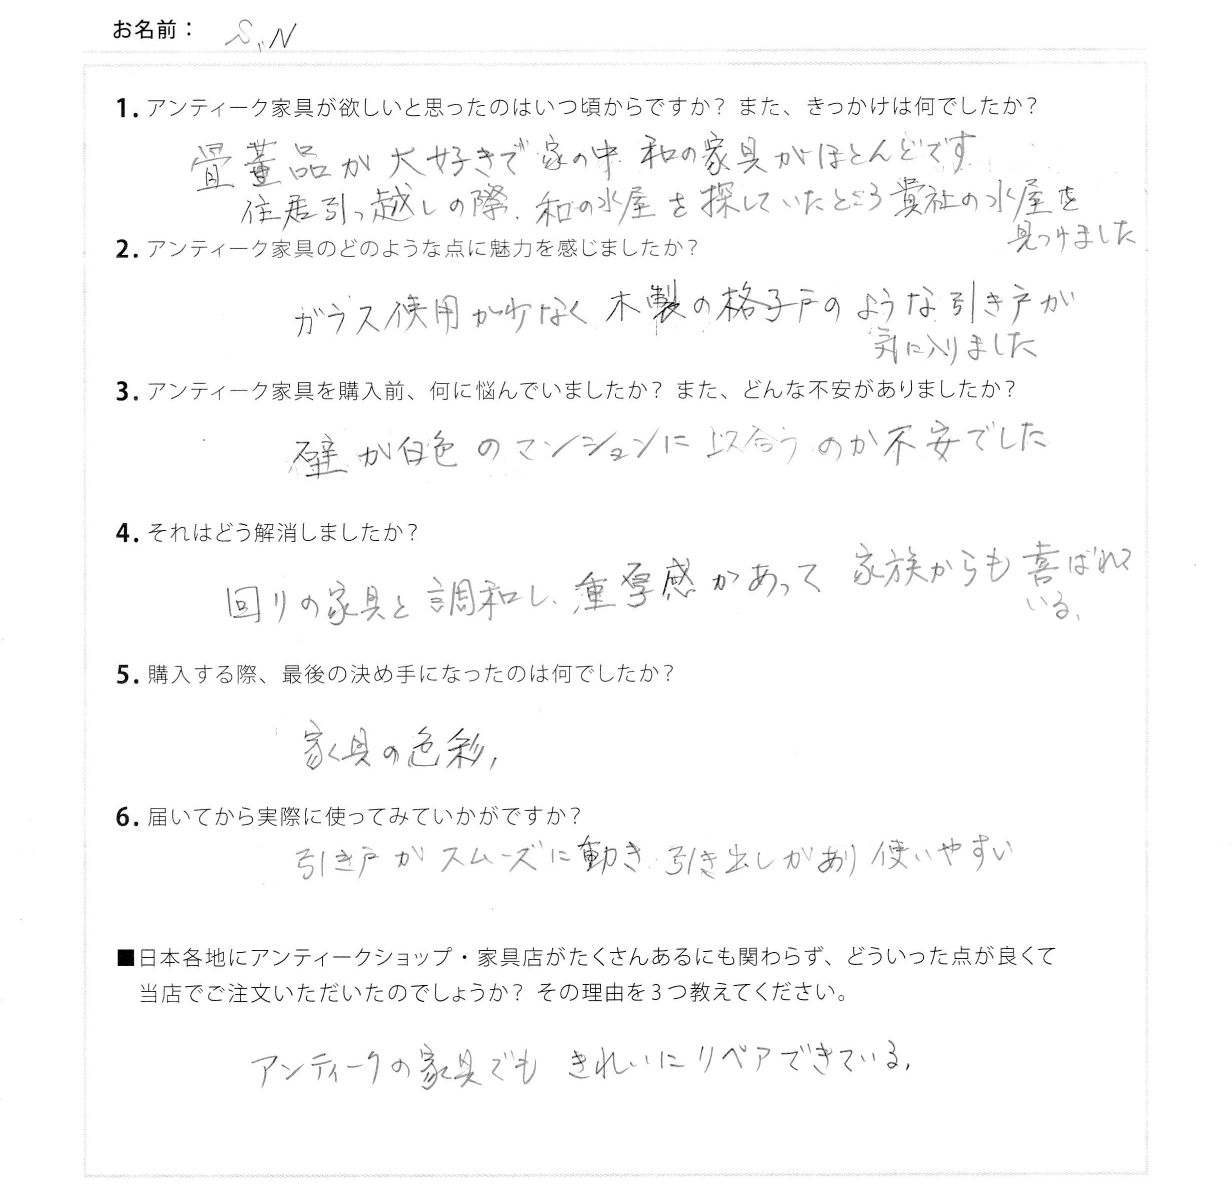 お名前： S,N
1. アンティーク家具が欲しいと思ったのはいつ頃からですか？ また、きっかけは何でしたか？
骨董品が大好きで家の中 和の家具がほとんどです
住居引っ越しの際、和の水屋を探していたところ貴社の水屋を
見つけました
2. アンティーク家具のどのような点に魅力を感じましたか？
ガラス使用が少なく 木製の格子戸のような引き戸が
気に入りました
3. アンティーク家具を購入前、何に悩んでいましたか？ また、どんな不安がありましたか？
壁が白色のマンションに似合うのか不安でした
4. それはどう解消しましたか？
回りの家具と調和し、重厚感があって 家族からも喜ばれて
いる、
5. 購入する際、最後の決め手になったのは何でしたか？
家具の色彩、
6. 届いてから実際に使ってみていかがですか？
引き戸がスムーズに動き 引き出しがあり 使いやすい
■日本各地にアンティークショップ・家具店がたくさんあるにも関わらず、どういった点が良くて
当店でご注文いただいたのでしょうか？ その理由を３つ教えてください。
アンティークの家具でも きれいにリペアできている、